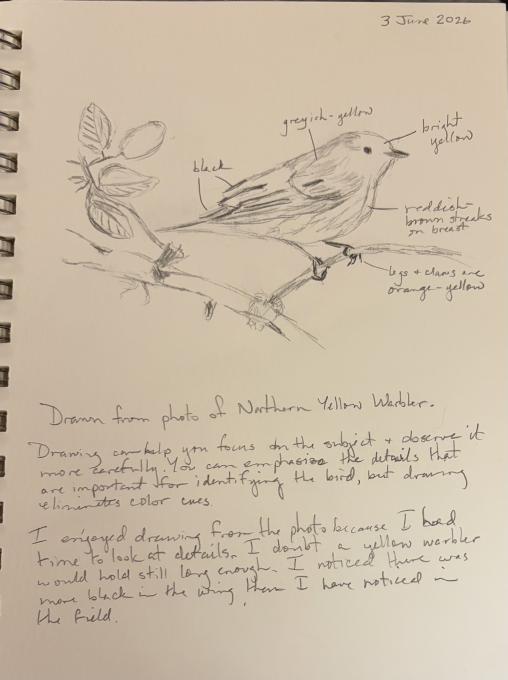 3 June 2026
greyish-yellow
bright
yellow
black
reddish-
brown streaks
on breast
legs + claws are
orange-yellow
Drawn from photo of Northern Yellow Warbler.
Drawing can help you focus on the subject + observe it
more carefully. You can emphasize the details that
are important for identifying the bird, but drawing
eliminates color cues.
I enjoyed drawing from the photo because I had
time to look at details. I doubt a yellow warbler
would hold still long enough. I noticed there was
more black in the wing than I have noticed in
the field.